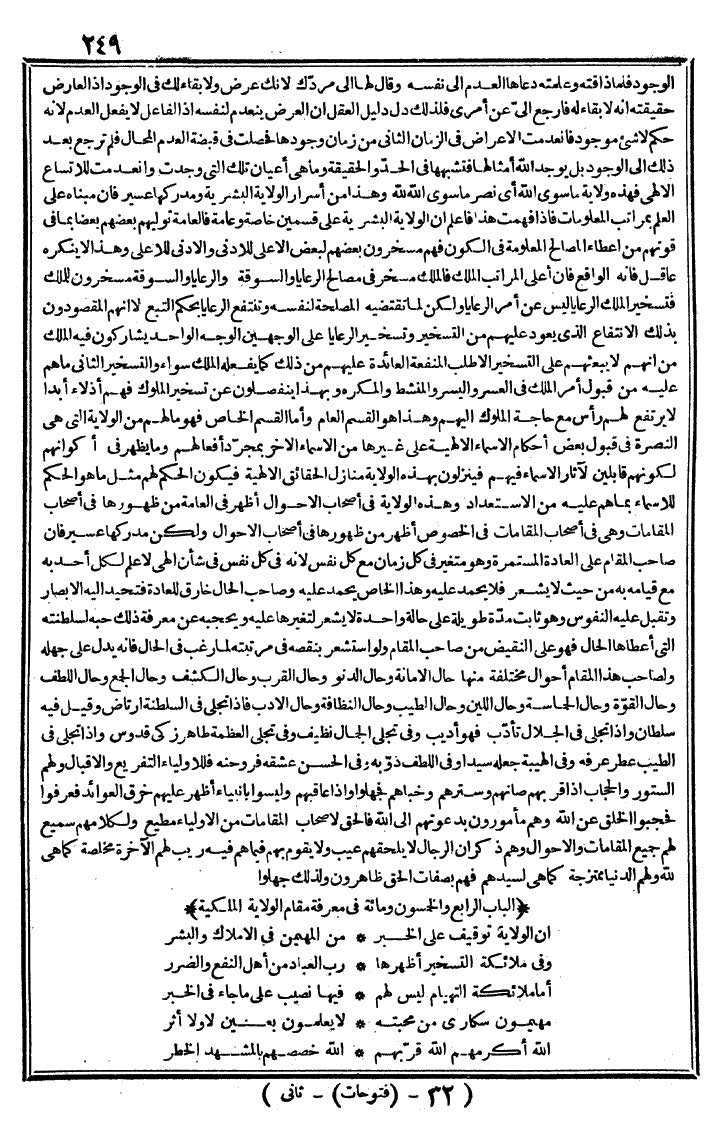 ٢٤٩
الوجود فلما ذاقته وعلمته دعاها العدم الى نفسه وقال لها الى مردّك لانك عرض ولا بقاء لك فى الوجود اذ العارض
حقيقته انه لا بقاء له فارجع الىّ عن أمرى فلذلك دل دليل العقل ان العرض ينعدم لنفسه اذ الفاعل لا يفعل العدم لانه
حكم لا شئ موجود فانعدمت الاعراض فى الزمان الثانى من زمان وجودها فحصلت فى قبضة العدم المحال فلم ترجع بعد
ذلك الى الوجود بل يوجد الله أمثالها فتشبهها فى الحدّ والحقيقة وما هى أعيان تلك التى وجدت وانعدمت للاتساع
الالهى فهذه ولاية ماسوى الله أى نصر ماسوى الله لله وهذا من أسرار الولاية البشرية ومدركها عسير فان مبناه على
العلم بمراتب المعلومات فاذا فهمت هذا فاعلم ان الولاية البشرية على قسمين خاصة وعامة فالعامة توليهم بعضهم بعضا بما فى
قوتهم من اعطاء المصالح المعلومة فى الكون فهم مسخرون بعضهم لبعض الاعلى للادنى والادنى للاعلى وهذا لا ينكره
عاقل فانه الواقع فان أعلى المراتب الملك فالملك مسخر فى مصالح الرعايا والسوقة والرعايا والسوقة مسخرون للملك
فتسخير الملك الرعايا ليس عن أمر الرعايا ولكن لما تقتضيه المصلحة لنفسه وتنتفع الرعايا بحكم التبع لا انهم المقصودون
بذلك الانتفاع الذى يعود عليهم من التسخير وتسخير الرعايا على الوجهين الوجه الواحد يشاركون فيه الملك
من انهم لا يبعثهم على التسخير الا طلب المنفعة العائدة عليهم من ذلك كما يفعله الملك سواء والتسخير الثانى ما هم
عليه من قبول أمر الملك فى العسر واليسر والمنشط والمكره وبهذا ينفصلون عن تسخير الملوك فهم أذلاء أبدا
لا يرتفع لهم رأس مع حاجة الملوك اليهم وهذا هو القسم العام وأما القسم الخاص فهو ما لهم من الولاية التى هى
النصرة فى قبول بعض أحكام الاسماء الالهية على غيرها من الاسماء الاخر بمجرّد أفعالهم وما يظهر فى أكوانهم
لكونهم قابلين لآثار الاسماء فيهم فينزلون بهذه الولاية منازل الحقائق الالهية فيكون الحكم لهم مثل ما هو الحكم
للاسماء بما هم عليه من الاستعداد وهذه الولاية فى أصحاب الاحوال أظهر فى العامة من ظهورها فى أصحاب
المقامات وهى فى أصحاب المقامات فى الخصوص أظهر من ظهورها فى أصحاب الاحوال ولكن مدركها عسير فان
صاحب المقام على العادة المستمرة وهو متغير فى كل زمان مع كل نفس لانه فى كل نفس فى شأن الهى لا علم لكل أحد به
مع قيامه به من حيث لا يشعر فلا يحمد عليه وهذا الخاص يحمد عليه وصاحب الحال خارق للعادة فتحيد اليه الابصار
وتقبل عليه النفوس وهو ثابت مدّة طويلة على حالة واحدة لا يشعر لتغيرها عليه ويحجبه عن معرفة ذلك حبه لسلطنته
التى أعطاها الحال فهو على النقيض من صاحب المقام ولو استشعر بنقصه فى مرتبته لما رغب فى الحال فانه يدل على جهله
ولصاحب هذا المقام أحوال مختلفة منها حال الامانة وحال الدنو وحال القرب وحال الكشف وحال الجمع وحال اللطف
وحال القوّة وحال الحماسة وحال اللين وحال الطيب وحال النظافة وحال الادب فاذا تجلى فى السلطنة ارتاض وقيل فيه
سلطان واذا تجلى فى الجلال تأدّب فهو أديب وفى تجلى الجمال نظيف وفى تجلى العظمة طاهر زكى قدوس واذا تجلى فى
الطيب عطر عرفه وفى الهيبة جعله سيدا وفى اللطف ذوّبه وفى الحسن عشقه فروحنه فللاولياء التفريع والاقبال ولهم
الستور والحجاب اذا قربهم صانهم وسترهم وخباهم فجهلوا واذا عاقبهم وليسوا بانبياء أظهر عليهم خرق العوائد فعرفوا
فحجبوا الخلق عن الله وهم مأمورون بدعوتهم الى الله فالحق لاصحاب المقامات من الاولياء مطيع ولكلامهم سميع
لهم جميع المقامات والاحوال وهم ذكران الرجال لا يلحقهم عيب ولا يقوم بهم فيما هم فيه ريب لهم الآخرة مخلصة كما هى
لله ولهم الدنيا ممتزجة كما هى لسيدهم فهم بصفات الحق ظاهرون ولذلك جهلوا
﴿الباب الرابع والخمسون ومائة فى معرفة مقام الولاية الملكية﴾
ان الولاية توقيف على الخبر * من المهيمن فى الاملاك والبشر
وفى ملائكة التسخير أظهرها * رب العباد من أهل النفع والضرر
أما ملائكة التهيام ليس لهم * فيها نصيب على ما جاء فى الخبر
مهيمون سكارى من محبته * لا يعلمون بعين لا ولا أثر
الله أكرمهم الله قربهم * الله خصصهم بالمشهد الخطر
( ٣٢ - (فتوحات) - ثانى )